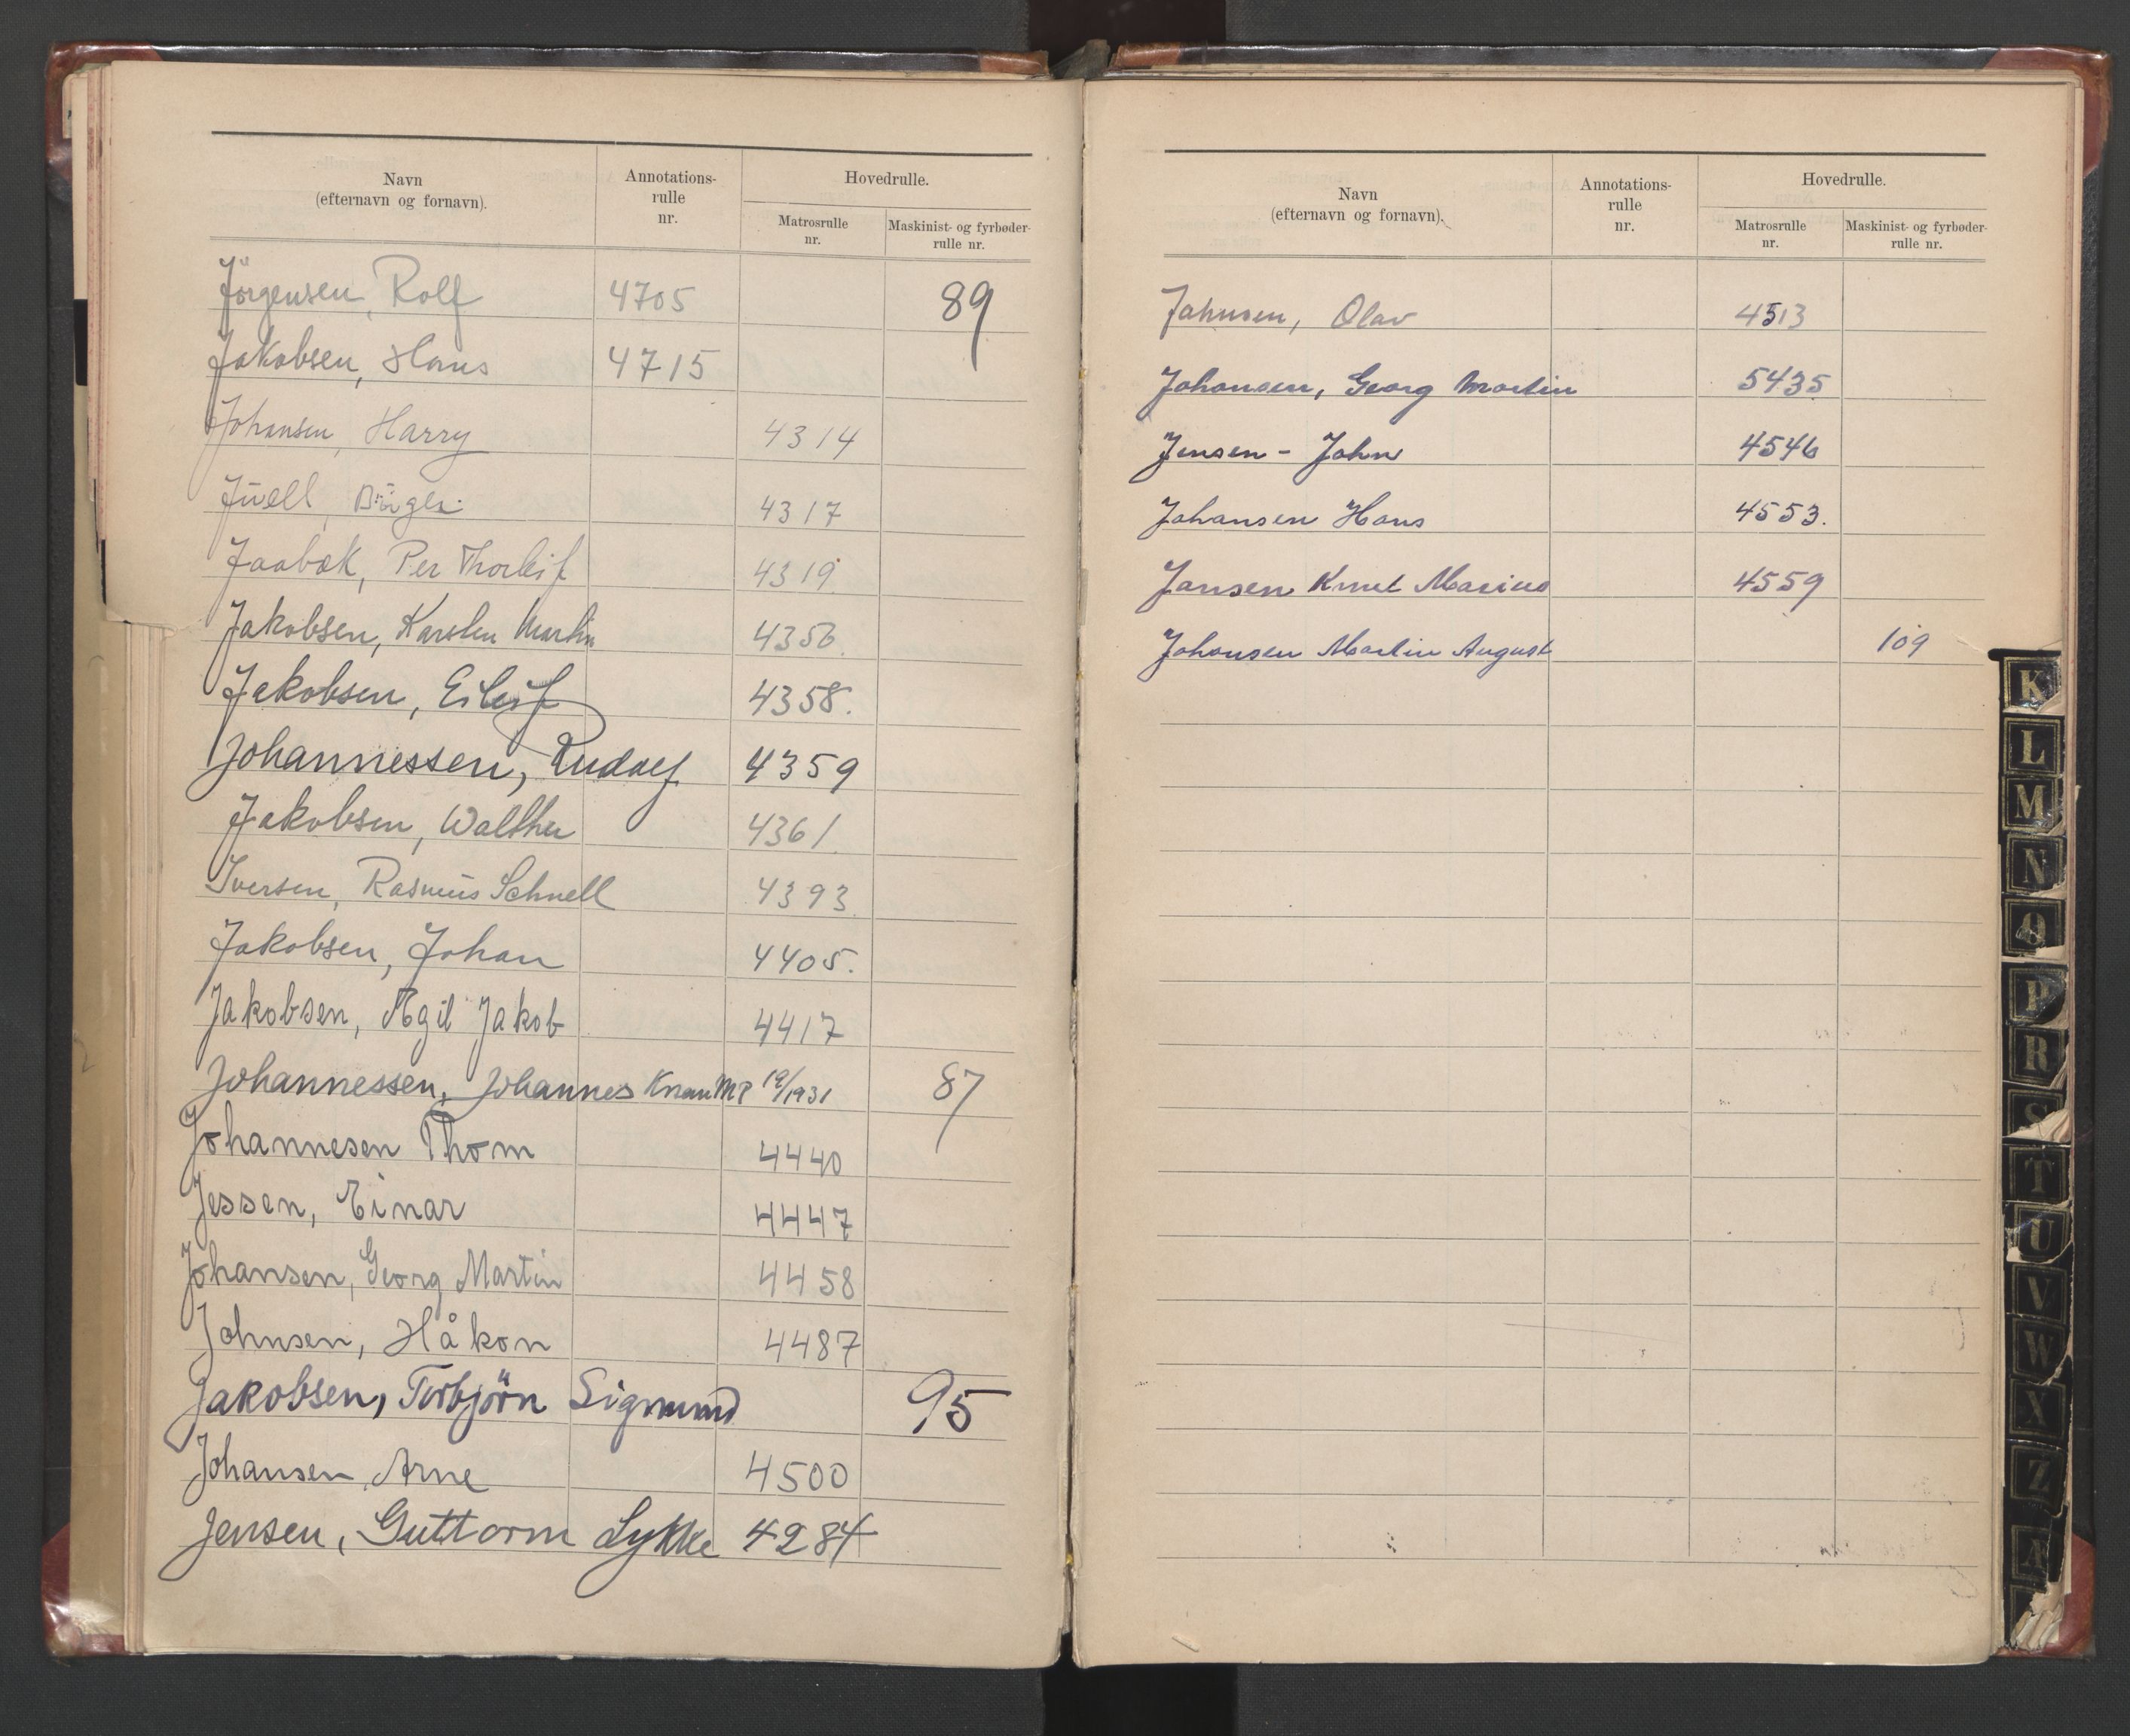 Navn
(efternavn og fornavn).
Annotations-
rulle
nr.
Hovedrulle.
Matrosrulle
nr.
Maskinist- og fyrbøder-
rulle nr.
Jörgensen, Rolf 4705 89
Jakobsen, Hans 4715
Johansen, Harry 4314
Juell, 4317
Jaabæk, Per Thorleif 4319.
Jakobsen, Karsten Martin 4356.
Jakobsen, Eileif 4358.
Johannessen, Rudolf 4359
Jakobsen, Walther 4361.
Iversen, Rasmus Schnell 4393.
Jakobsen, Johan 4405.
Jakobsen, Ægil Jakob 4417
Johannessen, Johannes 87
Johannesen Thom 4440
Jessen, Einar 4447
Johansen, Georg Martin 4458
Johnsen, Håkon 4487
Jakobsen, Torbjörn Sigmund 95
Johansen, Arne 4500
Jensen, Guttorm Lykke 4284
Navn
(efternavn og fornavn).
Annotations-
rulle
nr.
Hovedrulle.
Matrosrulle
nr.
Maskinist- og fyrbøder-
rulle nr.
Johnsen, Olav 4513
Johansen, Georg Martin 5435
Jensen - John 4546
Johansen Hans 4553.
Jansen Knut Marius 4559
Johansen Martin August 109
K
L
M
N
O
P
R
S
T
U
V
W
X
Z
Æ